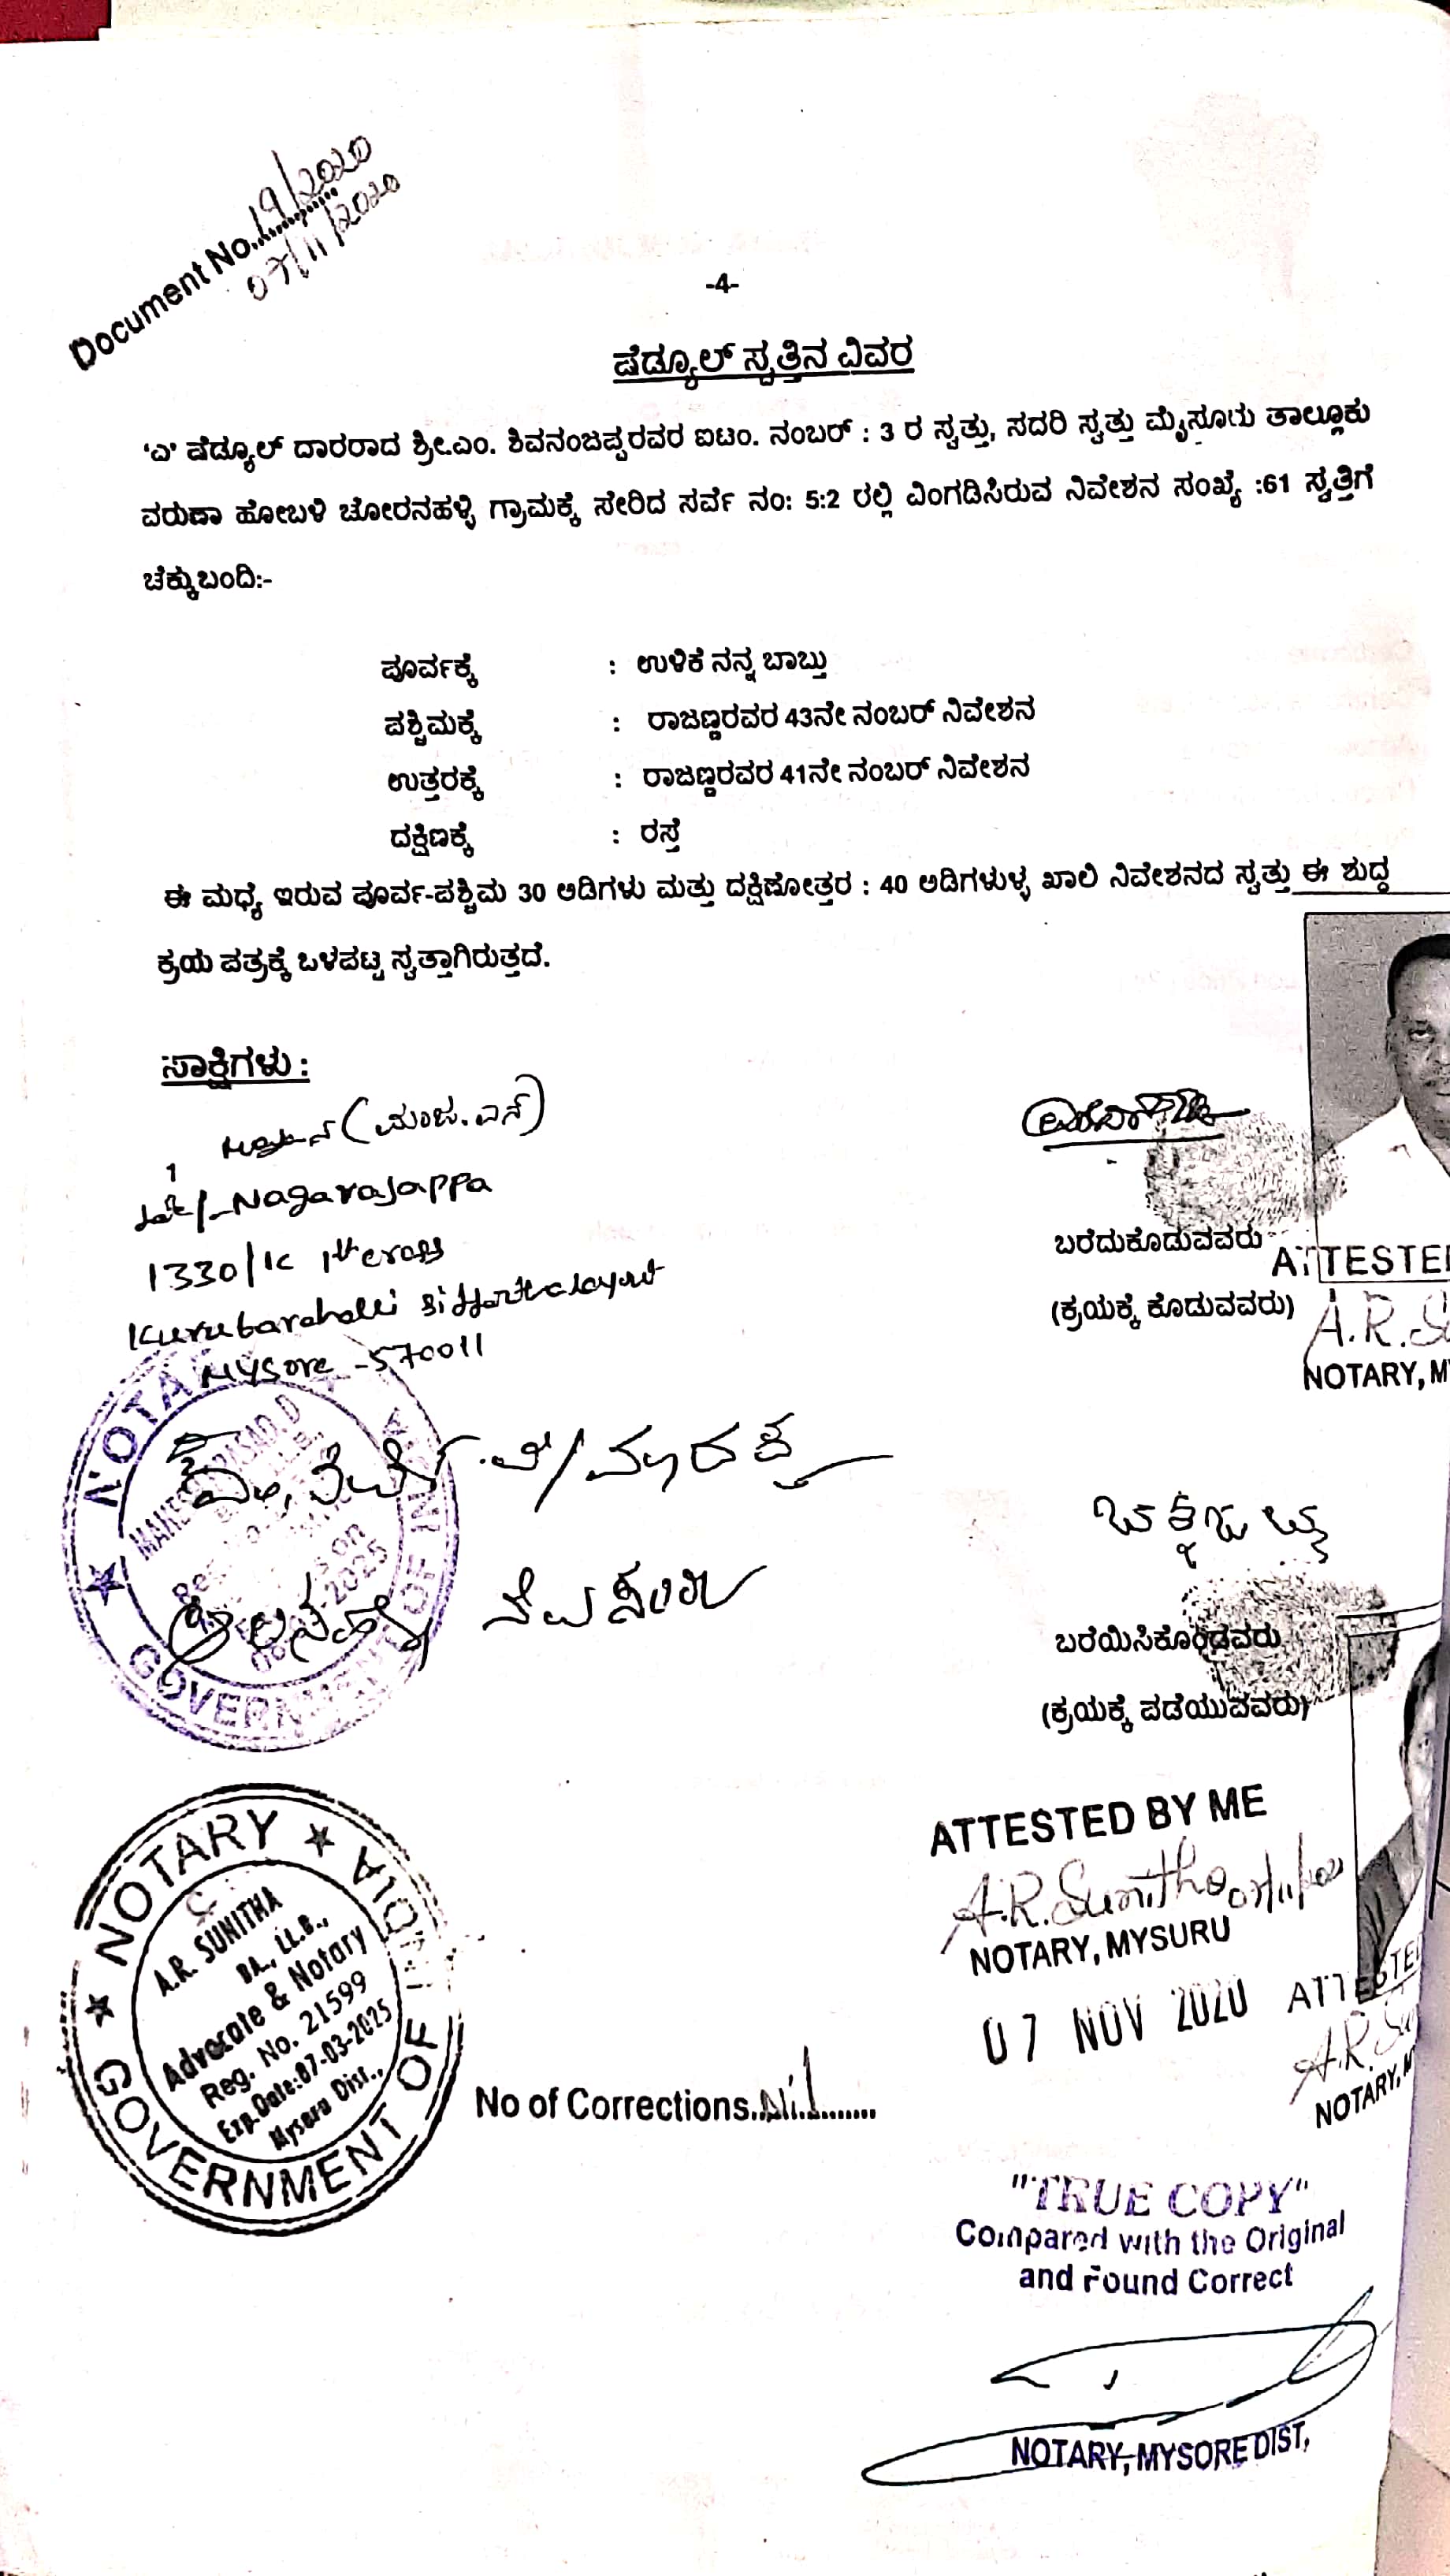 Document No. 19/2020
07/11/2020
-4-
ಷೆಡ್ಯೂಲ್ ಸ್ವತ್ತಿನ ವಿವರ
'ಎ' ಷೆಡ್ಯೂಲ್ ದಾರರಾದ ಶ್ರೀ.ಎಂ. ಶಿವನಂಜಪ್ಪರವರ ಐಟಂ. ನಂಬರ್ : 3 ರ ಸ್ವತ್ತು, ಸದರಿ ಸ್ವತ್ತು ಮೈಸೂರು ತಾಲ್ಲೂಕು
ವರುಣಾ ಹೋಬಳಿ ಚೋರನಹಳ್ಳಿ ಗ್ರಾಮಕ್ಕೆ ಸೇರಿದ ಸರ್ವೆ ನಂ: 5:2 ರಲ್ಲಿ ವಿಂಗಡಿಸಿರುವ ನಿವೇಶನ ಸಂಖ್ಯೆ :61 ಸ್ವತ್ತಿಗೆ
ಚೆಕ್ಕುಬಂದಿ:-
ಪೂರ್ವಕ್ಕೆ : ಉಳಿಕೆ ನನ್ನ ಬಾಬ್ತು
ಪಶ್ಚಿಮಕ್ಕೆ : ರಾಜಣ್ಣರವರ 43ನೇ ನಂಬರ್ ನಿವೇಶನ
ಉತ್ತರಕ್ಕೆ : ರಾಜಣ್ಣರವರ 41ನೇ ನಂಬರ್ ನಿವೇಶನ
ದಕ್ಷಿಣಕ್ಕೆ : ರಸ್ತೆ
ಈ ಮಧ್ಯೆ ಇರುವ ಪೂರ್ವ-ಪಶ್ಚಿಮ 30 ಅಡಿಗಳು ಮತ್ತು ದಕ್ಷಿಣೋತ್ತರ : 40 ಅಡಿಗಳುಳ್ಳ ಖಾಲಿ ನಿವೇಶನದ ಸ್ವತ್ತು ಈ ಶುದ್ಧ
ಕ್ರಯ ಪತ್ರಕ್ಕೆ ಒಳಪಟ್ಟ ಸ್ವತ್ತಾಗಿರುತ್ತದೆ.
ಸಾಕ್ಷಿಗಳು :
(ಮಂಜು.ಎನ್)
1
Nagarajappa
1330/1C 1th cross
Kurubarahalli Siddhartha layout
Mysore -570011
ಬರೆದುಕೊಡುವವರು
(ಕ್ರಯಕ್ಕೆ ಕೊಡುವವರು)
ATTESTED
A.R.S
NOTARY, M
ಬರೆಯಿಸಿಕೊಂಡವರು
(ಕ್ರಯಕ್ಕೆ ಪಡೆಯುವವರು)
NOTARY
GOVERNMENT OF INDIA
ATTESTED BY ME
A.R.Sunitha
NOTARY, MYSURU
07 NOV 2020
ATTESTED
A.R.Su
NOTARY, M
NOTARY
A.R. SUNITHA
BA., LL.B.,
Advocate & Notary
Reg. No. 21599
Exp.Date:07-03-2025
Mysuru Dist.,
GOVERNMENT OF INDIA
No of Corrections..Nil.......
"TRUE COPY"
Compared with the Original
and Found Correct
NOTARY, MYSORE DIST,